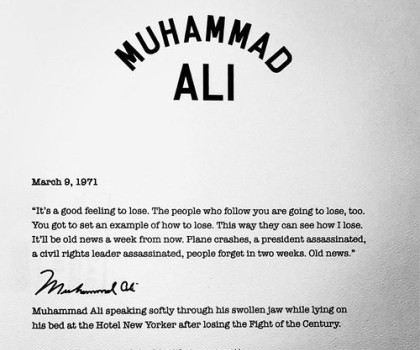 MUHAMMAD
ALI
March 9, 1971
“It’s a good feeling to lose. The people who follow you are going to lose, too.
You got to set an example of how to lose. This way they can see how I lose.
It’ll be old news a week from now. Plane crashes, a president assassinated,
a civil rights leader assassinated, people forget in two weeks. Old news.”
Muhammad Ali
Muhammad Ali speaking softly through his swollen jaw while lying on
his bed at the Hotel New Yorker after losing the Fight of the Century.